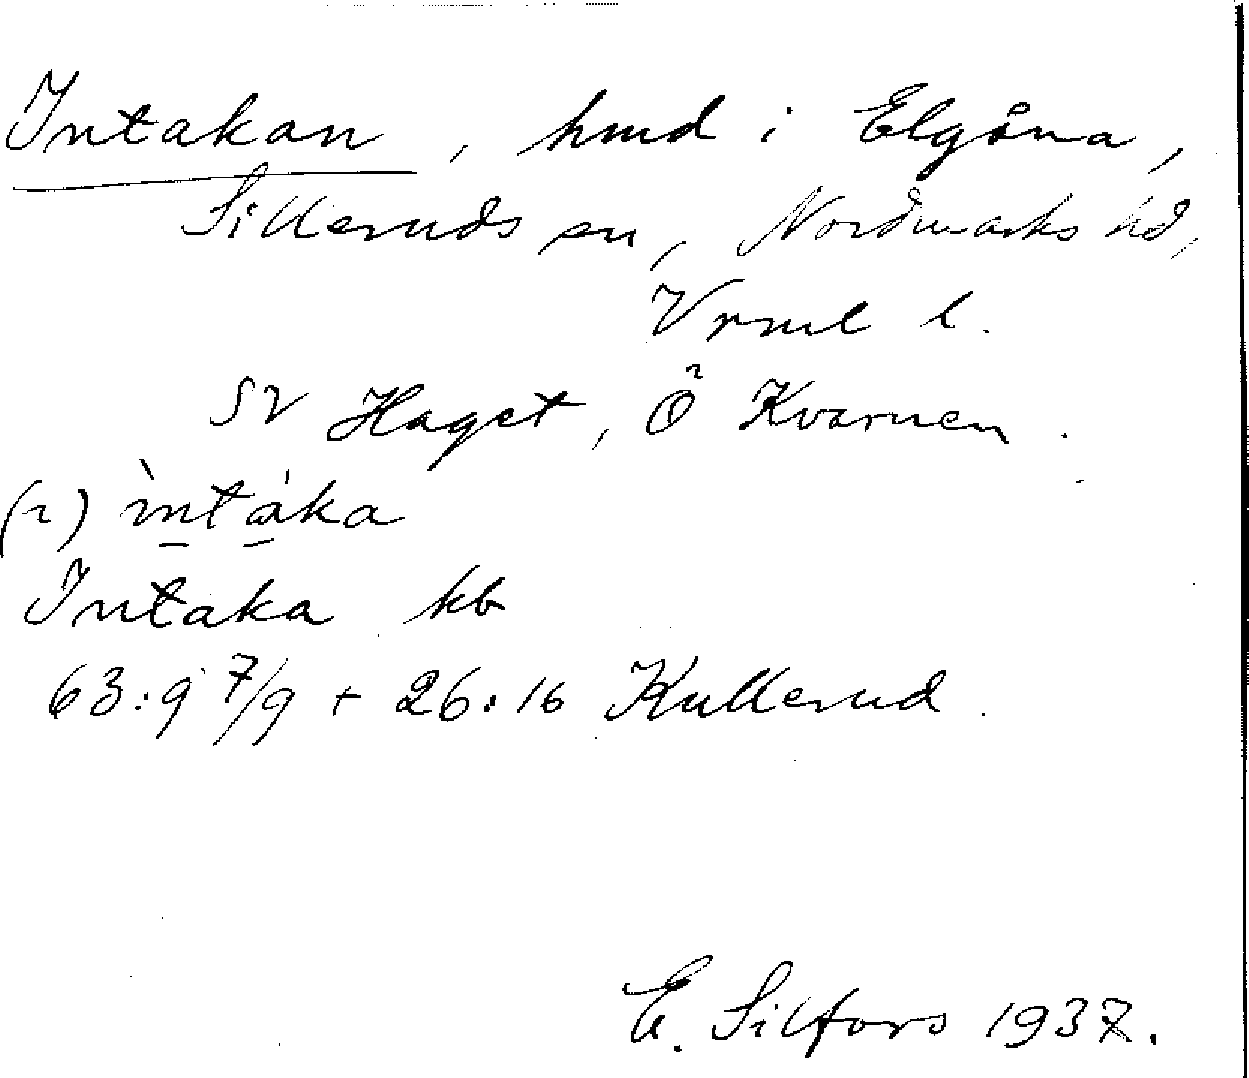 Intakan, hmd i Elgåna,
Silleruds sn, Nordmarks hd,
Vrml l.
SV Haget, Ö Kvarnen.
(2) ìntáka
Intaka kb
63:9 7/9 + 26:16 Kullerud.
E. Silfors 1937.